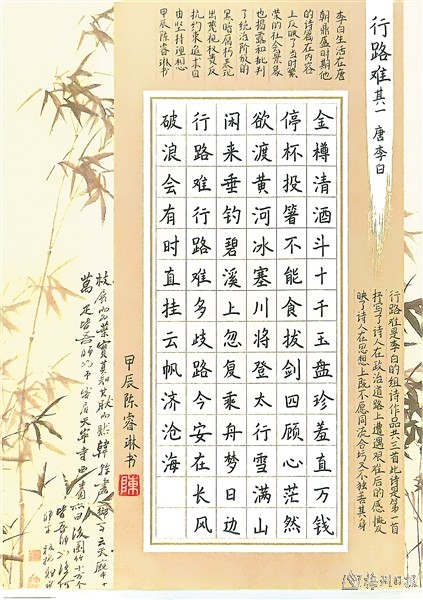 行路难其一 唐 李白
李白生活在唐
朝鼎盛时期他
的诗篇在内容
上反映了当时繁
荣的社会景象
也揭露和批判
了统治阶级的
黑暗腐朽表现
出蔑视权贵反
抗约束追求自
由坚持理想
甲辰陈睿琳书
行路难是李白的组诗作品共三首此诗是第一首
抒写了诗人在政治道路上遭遇艰难后的感慨反
映了诗人在思想上既不愿同流合污又不独善其身
金樽清酒斗十千玉盘珍羞直万钱
停杯投箸不能食拔剑四顾心茫然
欲渡黄河冰塞川将登太行雪满山
闲来垂钓碧溪上忽复乘舟梦日边
行路难行路难多歧路今安在长风
破浪会有时直挂云帆济沧海
甲辰陈睿琳书
陳
梅州日报